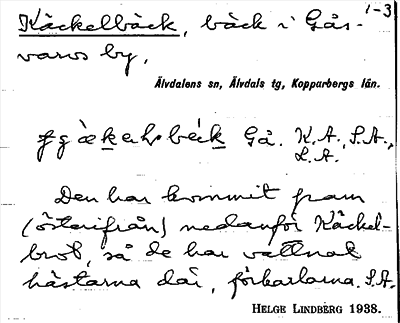 1-3
Käckelbäck, bäck i Gås-
varvs by,
Älvdalens sn, Älvdals tg, Kopparbergs län.
bäck Gå. K.A., S.A.,
L.A.
Den har kommit fram
(österifrån) nedanför Käckel-
brot, så de har vattnat
hästarna där, förkarlarna. S.A.
HELGE LINDBERG 1938.